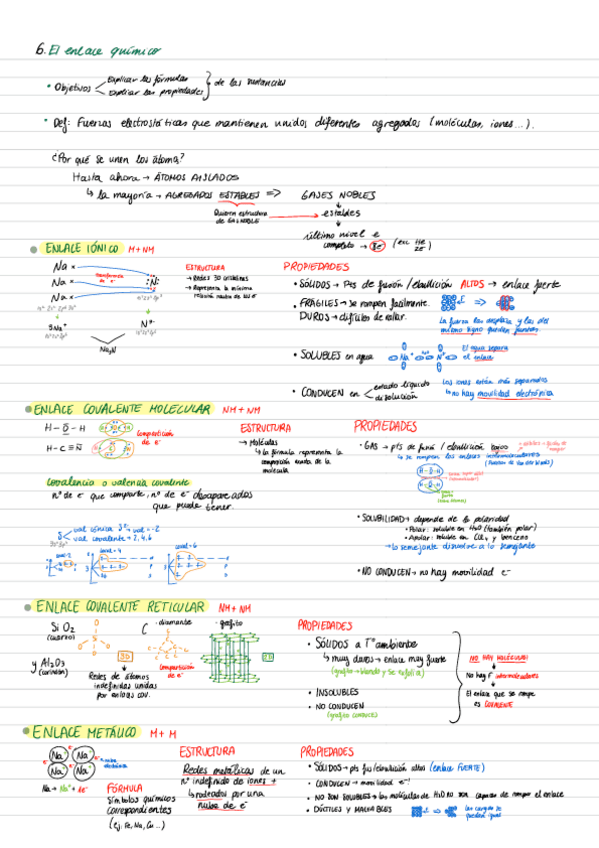 6. El enlace químico
• Objetivos
Explicar las fórmulas
Explicar las propiedades
de las sustancias
• Def: Fuerzas electrostáticas que mantienen unidos diferentes agregados (moléculas, iones...).
¿Por qué se unen los átomos?
Hasta ahora → ÁTOMOS AISLADOS
↳ la mayoría → AGREGADOS ESTABLES => GASES NOBLES
Quieren estructura de GAS NOBLE
estables
último nivel e
completo → 8e-
ENLACE IÓNICO M + NM
Na ×
Na ×
Na ×
transferencia de e-
N
Na3N
ESTRUCTURA
→ Redes 3D cristalinas
→ Representa la mínima
PROPIEDADES
• SÓLIDOS → Pts de fusión / ebullición ALTOS → enlace fuerte
• FRÁGILES → se rompen fácilmente.
DUROS → difíciles de rayar.
La fuerza los desplaza y los del
mismo signo quedan juntos
• SOLUBLES en agua
El agua separa
el enlace
• CONDUCEN en
estado líquido
disolución
Los iones están más separados
↳ no hay movilidad electrónica
ENLACE COVALENTE MOLECULAR NM + NM
H – O – H
H – C ≡ N
Compartición
de e-
ESTRUCTURA
→ Moléculas
↳ la fórmula representa la
composición exacta de la
molécula
PROPIEDADES
• GAS → pts de fusión / ebullición bajos
↳ se rompen los enlaces intermoleculares
Covalencia o valencia covalente
nº de e- que comparte, nº de e- desapareados
que puede tener.
S
val iónica S2- → val = -2
val covalente → 2, 4, 6
cov = 2
cov = 4
cov = 6
• SOLUBILIDAD → depende de la polaridad
• Polar: soluble en H2O (también polar)
• Apolar: soluble en CCl4 y benceno
→ lo semejante disuelve a lo semejante
• NO CONDUCEN → no hay movilidad e-
ENLACE COVALENTE RETICULAR NM + NM
Si O2
(cuarzo)
y Al2O3
(corindón)
3D
C
• diamante
• grafito
2D
Redes de átomos
indefinidas unidas
por enlaces cov.
Compartición
de e-
PROPIEDADES
• SÓLIDOS a Tª ambiente
↳ muy duros → enlace muy fuerte
(grafito → blando y se exfolia)
• INSOLUBLES
• NO CONDUCEN
(grafito conduce)
NO HAY MOLÉCULAS
No hay F intermoleculares
El enlace que se rompe
es COVALENTE
ENLACE METÁLICO M + M
Na+ Na+
Na+ Na+
Na → Na+ + 1e-
FÓRMULA
Símbolos químicos
correspondientes
(ej: Fe, Na, Cu...)
ESTRUCTURA
Redes metálicas de un
nº indefinido de iones +
rodeados por una
nube de e-
PROPIEDADES
• SÓLIDOS → pts fus/ebullición altos (enlace FUERTE)
• CONDUCEN → movilidad e-!
• NO SON SOLUBLES → las moléculas de H2O no son capaces de romper el enlace
• DÚCTILES y MALEABLES
las cargas se
quedan igual